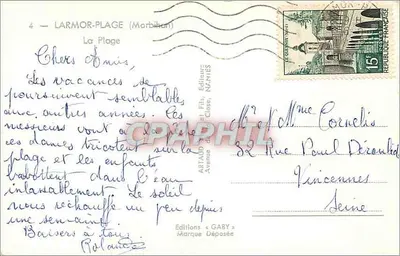 4 - LARMOR-PLAGE (Morbihan)
La Plage
Chers Amis,
Les vacances se
poursuivent semblables
aux autres années. Les
messieurs vont à la pêche
ces dames tricotent sur la
plage et les enfants
barbottent dans l'eau
inlassablement. Le soleil
nous réchauffe un peu depuis
une semaine
Baisers à tous
ARTAUD Fils, Éditeurs
NANTES
Editions « GABY »
Marque Déposée
15F
Mr et Mme Cornelis
32 Rue Paul Déroulède
Vincennes
Seine
CPAPHIL.com